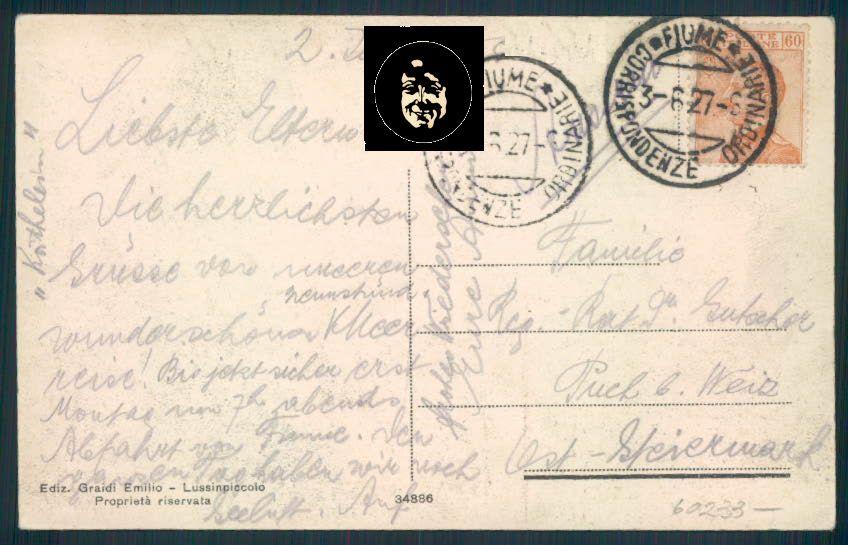 2.
Liebste Eltern
Die herrlichsten
Grüsse von unserer
wunderschönen Meer
reise! Bis jetzt sicher erst
Montag um 7h abends
Abfahrt von Fiume. Den
ganzen Tag haben wir noch
Seeluft. Auf
Familie
Reg.-Rat Dr. Gutscher
Puch b. Weiz
Ost-Steiermark
FIUME
CORRISPONDENZE ORDINARIE
3-6 27-
FIUME
ORDINARIE
6.27-
POSTE
60
Ediz. Graidi Emilio - Lussinpiccolo
Proprietà riservata
34886
60233-